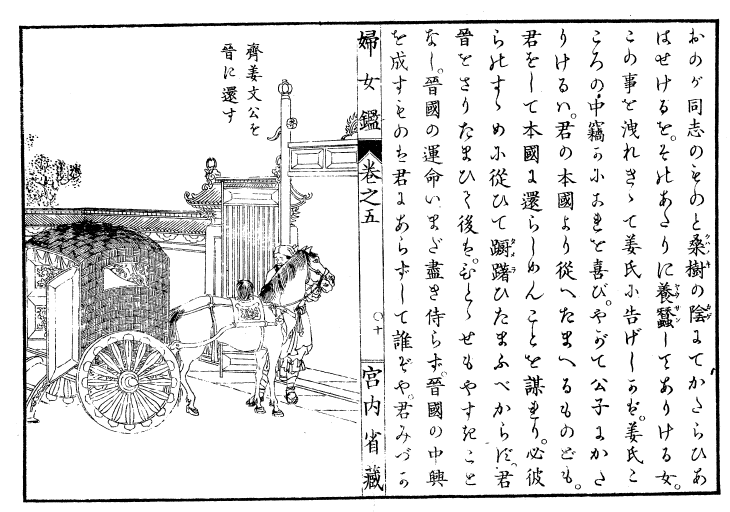 おのが同志のものと桑樹の陰にてかたらひあ
はせけるを。そのあたりに養蠶してありける女。
この事を洩れきゝて姜氏に告げしかば。姜氏こ
ころの中竊かにこれを喜び。やがて公子にかた
りけるハ。君の本國より從へたまへるものども。
君をして本國に還らしめんことを謀れり。必彼
らのすゝめに從ひて躕躇ひたまふべからず。君
晉をさりたまひて後は。ひとゝせもやすきこと
なし。晉國の運命いまだ盡き侍らず。晉國の中興
を成すものは君にあらずして誰ぞや。君みづか
婦女鑑
卷之五
〇十
宮内省藏
齊姜文公を
晉に還す